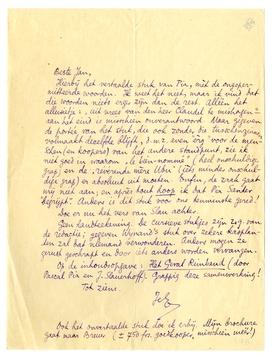 Beste Jan,
Hierbij het vertaalde stuk van Pia, mét de ongeoper-
mitteerde woorden. Ik weet het niet, maar ik vind dat
die woorden niets erger zijn dan de rest. Alléén het
alleneitje: uit weet van den heer Claudel te mishagen
aan het eind is misschien onverantwoord. Maar gegeven
de portée van het stuk, die ook zonder die tusschenzin
volmaakt dezelfde blijft, d.w.z. even erg voor de men-
schen (en koopers) van het andere standpunt, zie ik
niet goed in waarom „le bien-nommé" (heel onschuldige
grap) en de „zeverende mère Ubu" (iets minder onschul-
dige grap) er absoluut uit moeten. Enfin, de zaak gaat
wij niet aan, en après tout hoop ik dat Pia Sander
begrijpt. Anders is dit stuk voor ons kennismaking gered!
Loe er nu het vers van Slau achter.
Geen landteekening. De cursieve stukjes zijn zgn. van
de redactie; gegeven Wijnand's stuk over zekere kaaplan-
den zal dat niemand verwonderen. Anders mogen ze
gerust geschrapt en door iets anders vervangen worden.
Op de inhoudsopgave: Het Geval Rimbaud (door
Pascal Pia en J. Slauerhoff). Grappig deze samenwerking!
Tot ziens.
Ook het onvertaalde stuk doe ik erbij. Mijn brochure
gaat naar Breuer (± 750 fr. goedkooper, misschien méér!)